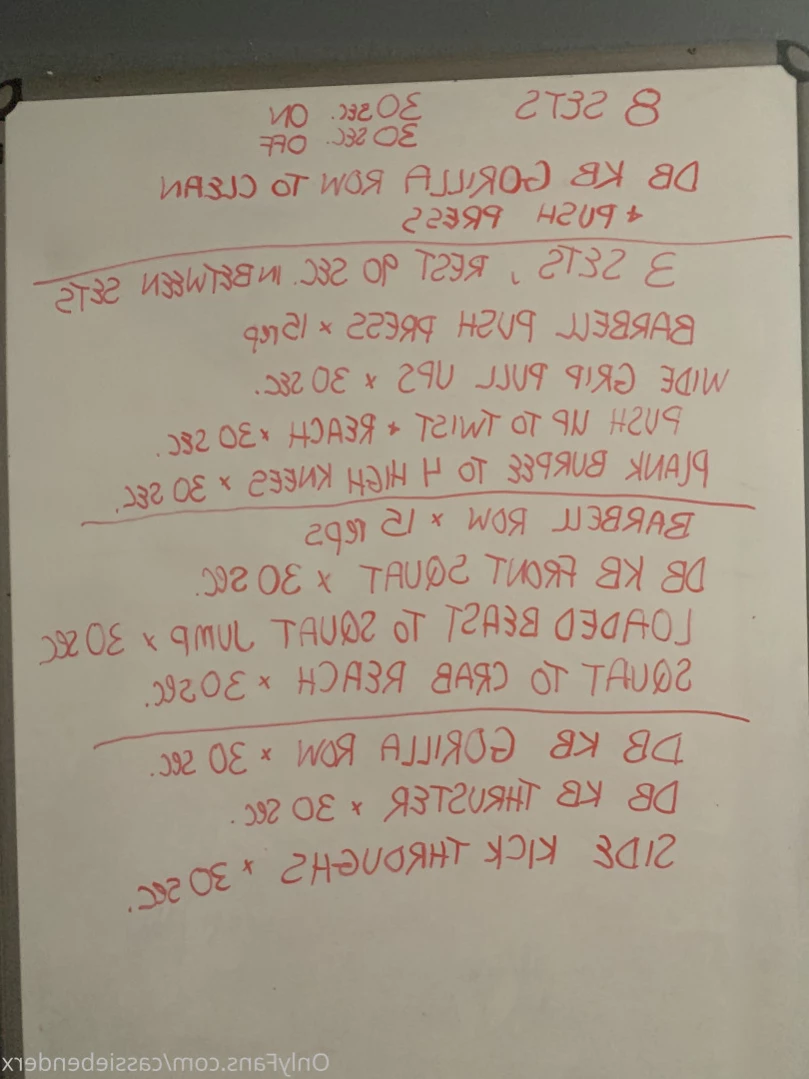 8 SETS 30 SEC. ON
30 SEC. OFF
DB KB GORILLA ROW TO CLEAN
+ PUSH PRESS
3 SETS, REST 90 SEC. INBETWEEN SETS
BARBELL PUSH PRESS x 15 rep
WIDE GRIP PULL UPS x 30 SEC.
PUSH UP TO TWIST + REACH x 30 SEC.
PLANK BURPEE TO 4 HIGH KNEES x 30 SEC.
BARBELL ROW x 15 reps
DB KB FRONT SQUAT x 30 SEC.
LOADED BEAST TO SQUAT JUMP x 30 SEC
SQUAT TO CRAB REACH x 30 SEC.
DB KB GORILLA ROW x 30 SEC.
DB KB THRUSTER x 30 SEC.
SIDE KICK THROUGHS x 30 SEC.
OnlyFans.com/cassiebenderx